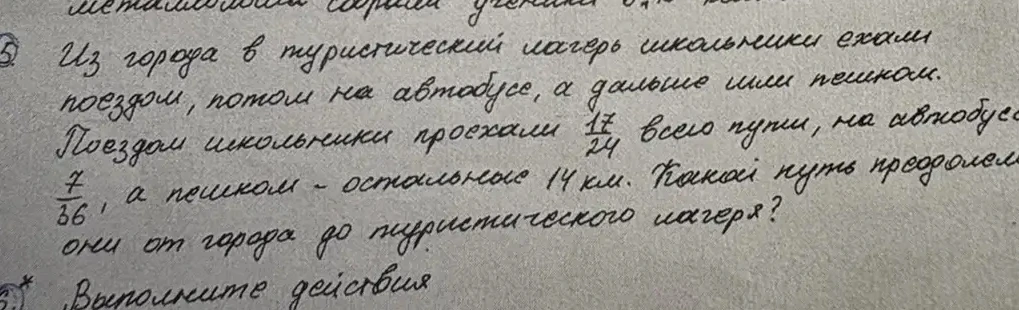 металлолома собрали ученики
5. Из города в туристический лагерь школьники ехали
поездом, потом на автобусе, а дальше шли пешком.
Поездом школьники проехали 17/24 всего пути, на автобусе
7/36, а пешком - остальные 14 км. Какой путь преодолели
они от города до туристического лагеря?
6.* Выполните действия